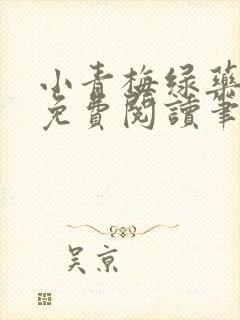 小青梅绿药
免費閱讀筆
吴京